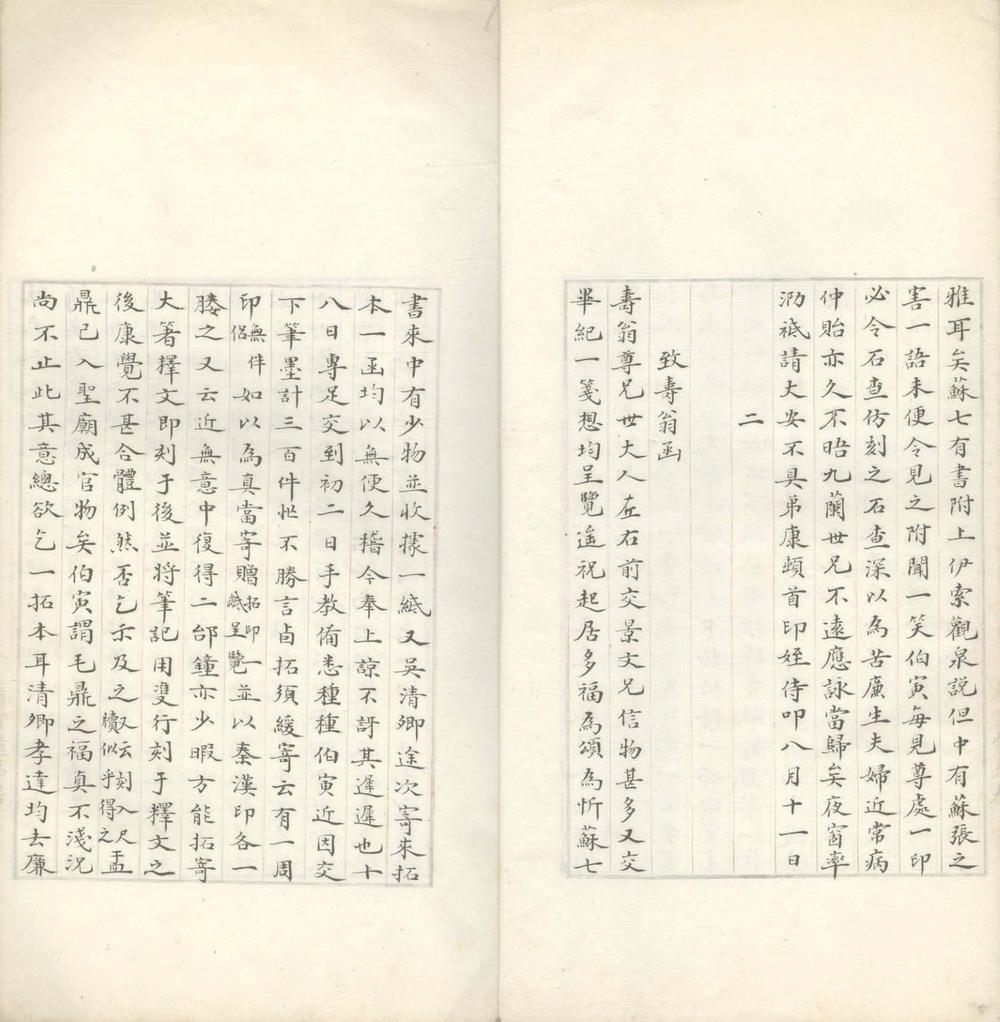 雅耳矣蘇七有書附上伊索觀泉説但中有蘇張之
害一語未便令見之附聞一笑伯寅每見尊處一印
必令石查仿刻之石查深以為苦廉生夫婦近常病
仲貽亦久不晤九蘭世兄不遠應詠當歸矣夜窗率
泐祗請大安不具弟康頓首印姪侍叩八月十一日
二
致壽翁函
壽翁尊兄世大人左右前交景文兄信物甚多又交
畢紀一箋想均呈覽遙祝起居多福為頌為忻蘇七
書來中有少物並收據一紙又吳清卿途次寄來拓
本一函均以無便久稽今奉上諒不訝其遲遲也十
八日專足交到初二日手教備悉種種伯寅近因交
下筆墨計三百件忙不勝言卣拓須緩寄云有一周
印無伴侶如以為真當寄贈拓印一紙呈覽並以秦漢印各一
媵之又云近無意中復得二邰鐘亦少暇方能拓寄
大著釋文即刻于後並將筆記用雙行刻于釋文之
後康覺不甚合體例然否乞示及之又云刻入尺牘似乎得之盂
鼎已入聖廟成官物矣伯寅謂毛鼎之福真不淺況
尚不止此其意總欲乞一拓本耳清卿孝達均去廉